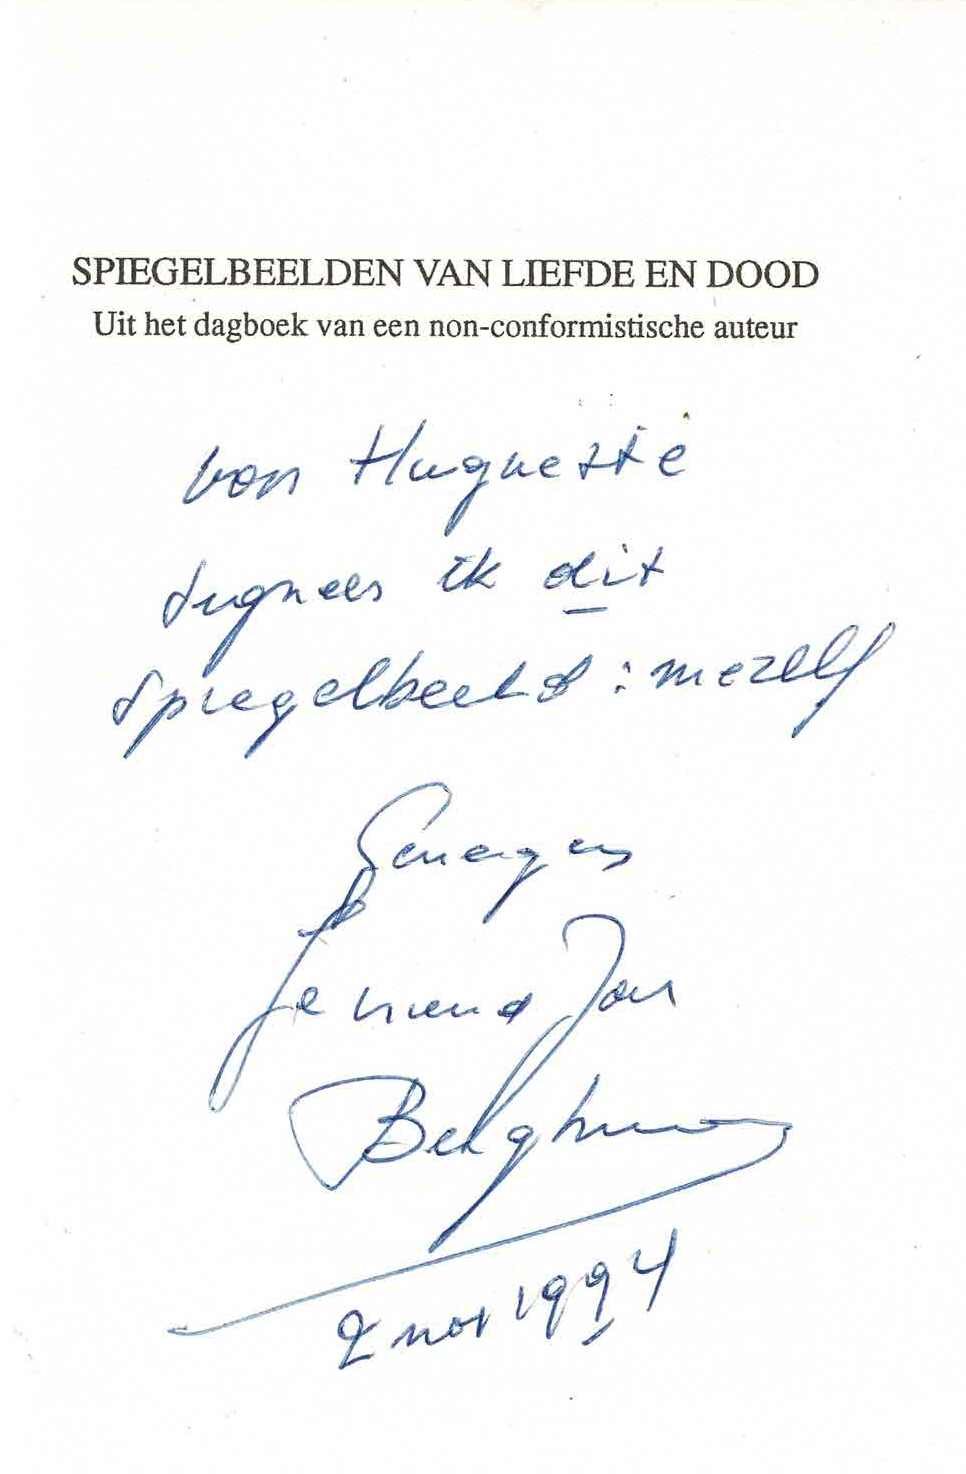 SPIEGELBEELDEN VAN LIEFDE EN DOOD
Uit het dagboek van een non-conformistische auteur
Huguette
ik dit
spiegelbeeld : mezelf
Genegen
Je vriend Jan
2 nov 1994